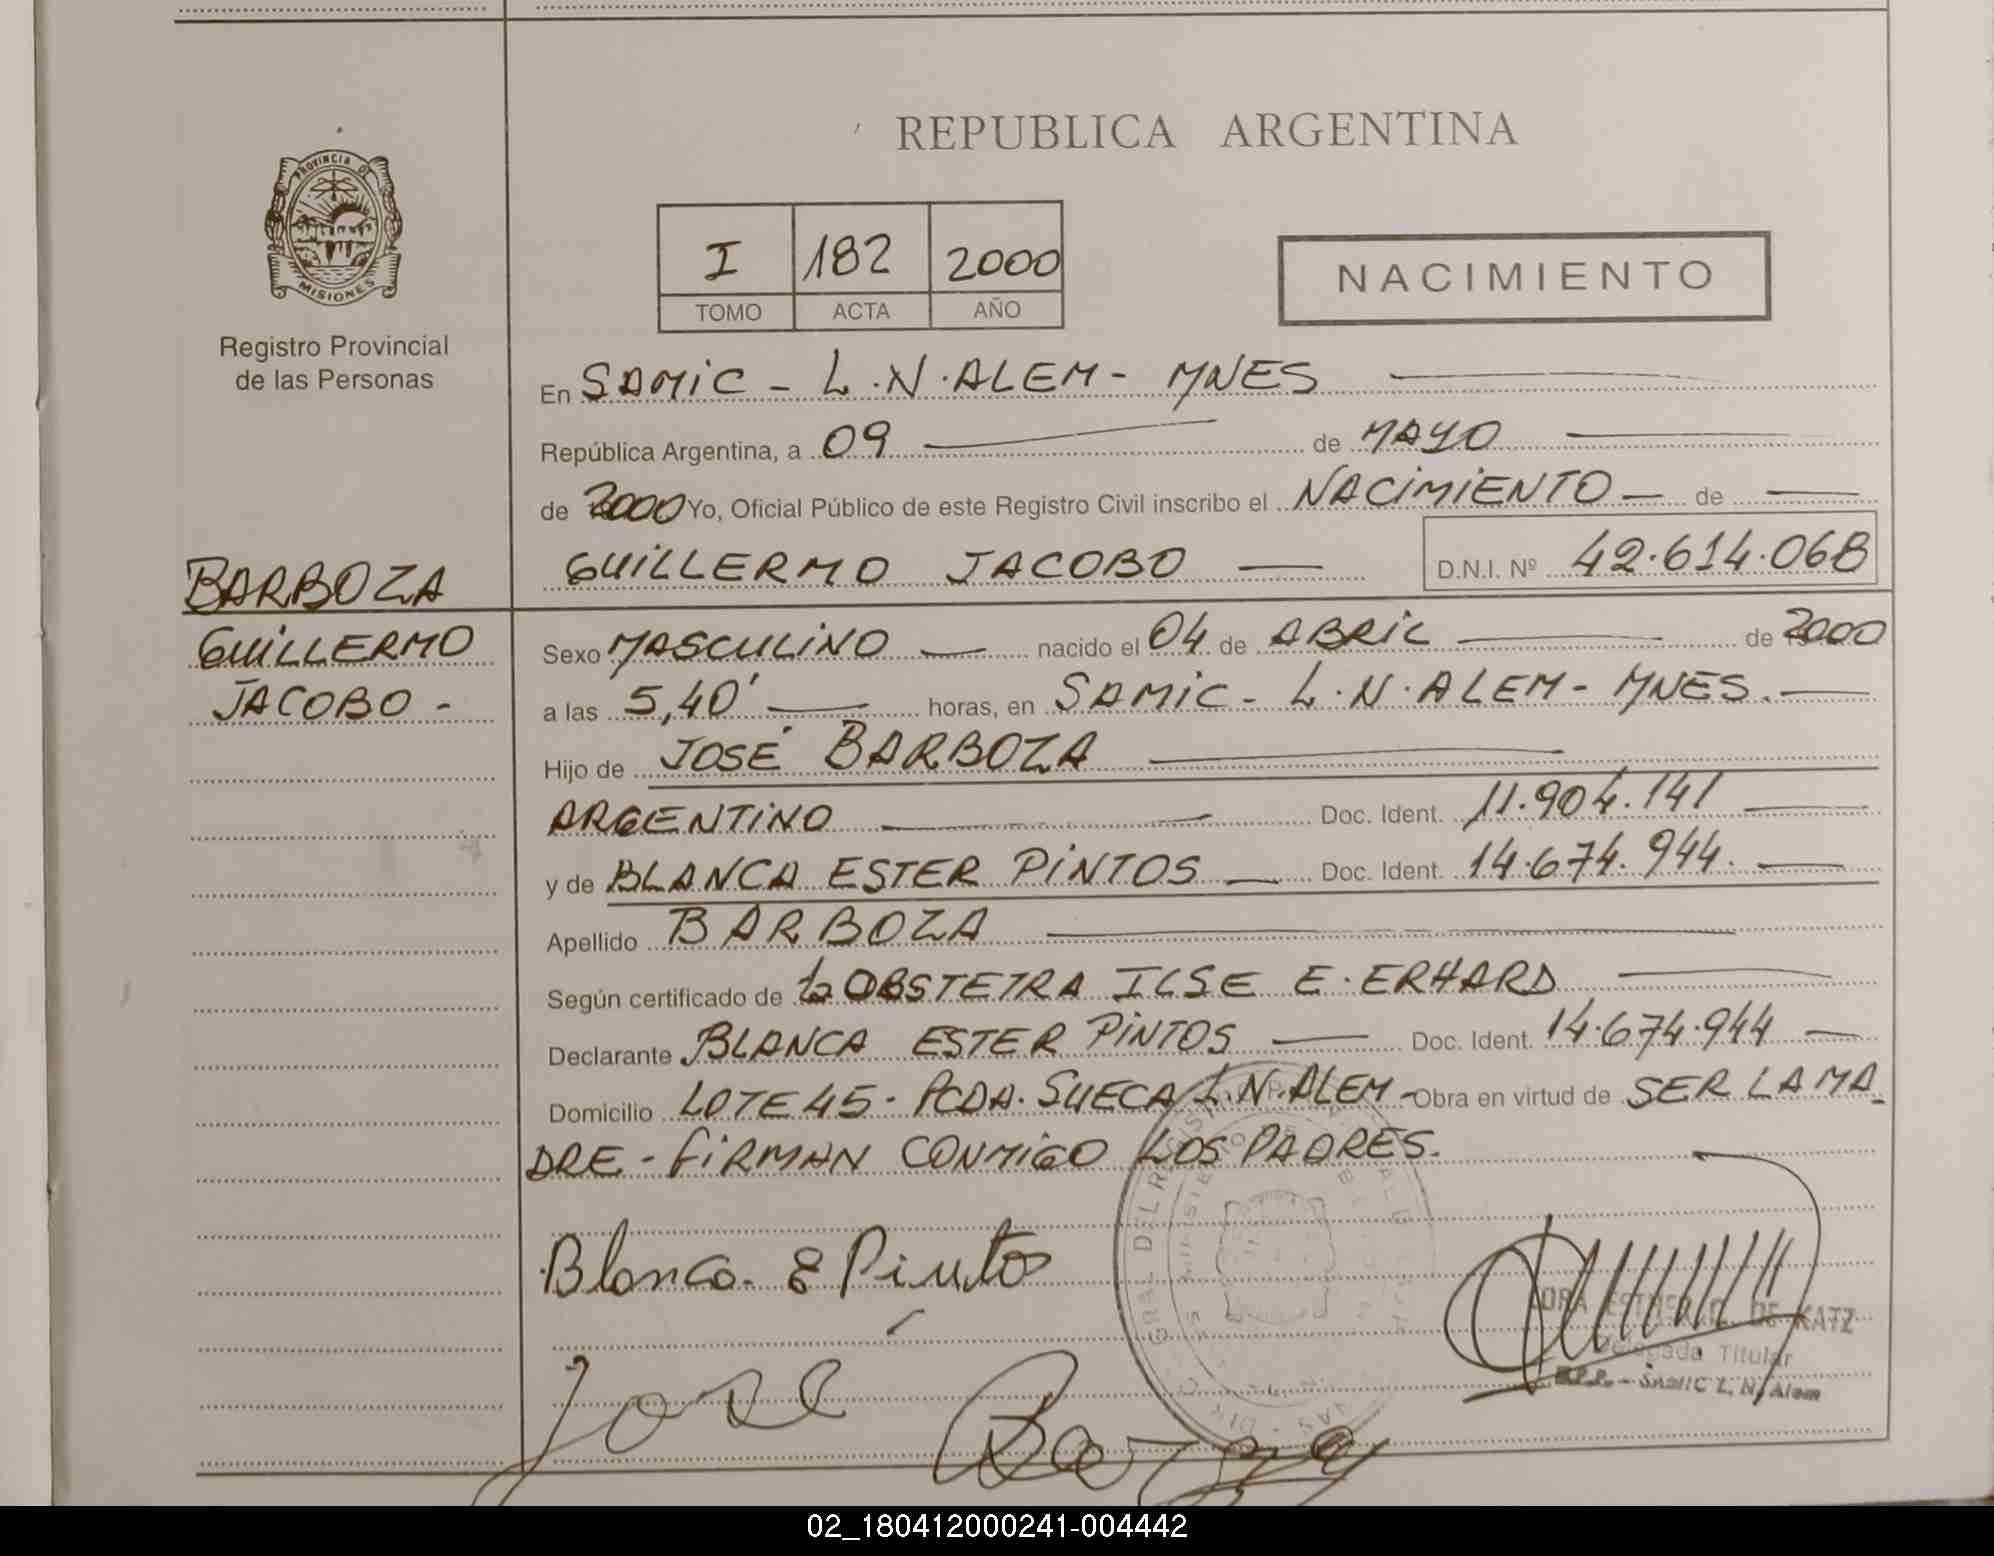 REPUBLICA ARGENTINA
PROVINCIA DE
MISIONES
Registro Provincial
de las Personas
I 182 2000
TOMO ACTA AÑO
NACIMIENTO
En SAMIC - L.N.ALEM - MNES
República Argentina, a 09 de MAYO
de 2000 Yo, Oficial Público de este Registro Civil inscribo el NACIMIENTO de
GUILLERMO JACOBO D.N.I. Nº 42.614.068
BARBOZA
GUILLERMO
JACOBO -
Sexo MASCULINO nacido el 04 de ABRIL de 2000
a las 5,40' horas, en SAMIC - L.N.ALEM - MNES.
Hijo de JOSÉ BARBOZA
ARGENTINO Doc. Ident. 11.904.141
y de BLANCA ESTER PINTOS Doc. Ident. 14.674.944.
Apellido BARBOZA
Según certificado de la OBSTETRA ILSE E. ERHARD
Declarante BLANCA ESTER PINTOS Doc. Ident. 14.674.944
Domicilio LOTE 45 - PCDA. SUECA L.N.ALEM - Obra en virtud de SER LA MA
DRE - FIRMAN CONMIGO LOS PADRES.
Blanca E Pintos
José
DE KATZ
Delegada Titular
R.P.P. - SAMIC L. N. Alem
02_180412000241-004442